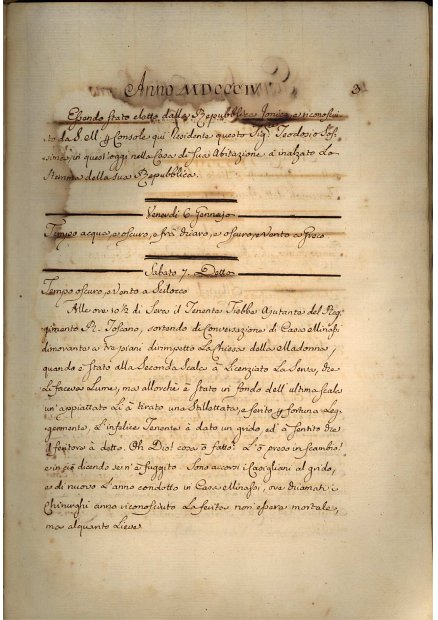 Anno MDCCCIV
3
Essendo stato eletto dalla Repubblica Jonica, e riconosciu-
to da S. M. p Console qui Residente questo Sig.
in quest'oggi nella Casa di Sua Abitazione à inalzato Lo
Stemma della Sua Repubblica.
Venerdi 6 Gennajo
Tempo acqua, e oscuro, e frà chiaro, e oscuro, e Vento a
Sabato 7. Detto
Tempo oscuro, e Vento a Scilocco
Alle ore 10½ di Sera il Tenente Ajutante del Reg-
gimento Rl. Toscano, sortendo di Conversazione di Casa
dimorante a tre piani dirimpetto La Chiesa della Madonna,
quando è stato alla Seconda Scala à Licenziato La Serva, che
Li faceva Lume, ma allorchè è Stato in fondo dell' ultima scala
un' appiattato Li à tirato una Stillettata, e ferito p fortuna Leg-
germente, L'infelice Tenente à dato un grido, ed à sentito che
il feritore à detto. Oh Dio! cosa ò fatto! L'ò preso in scambio!
e in ciò dicendo se n'è fuggito. Sono accorsi i Casigliani al grido,
e di nuovo L'anno condotto in Casa ove chiamati i
Chirurghi anno riconosciuto La ferita non essere mortale,
ma alquanto Lieve.